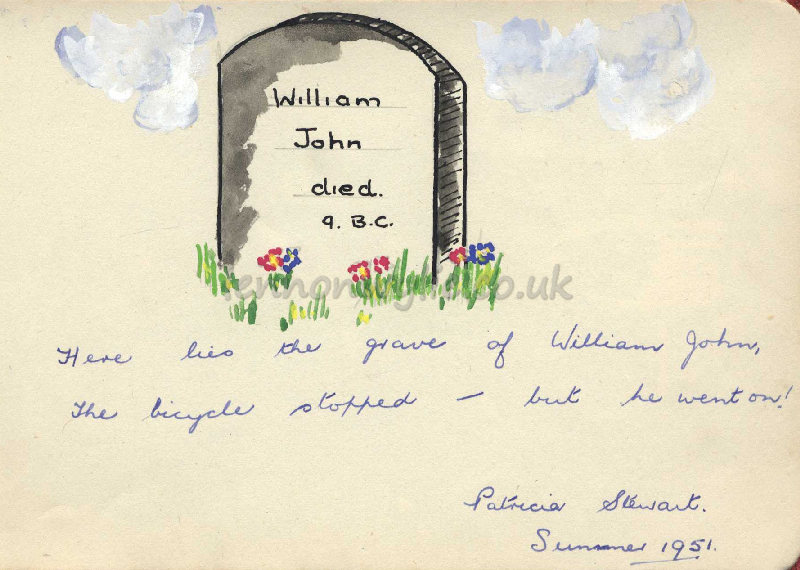 William
John
died.
9. B.C.
Here lies the grave of William John,
The bicycle stopped – but he went on!
Patricia Stewart.
Summer 1951.